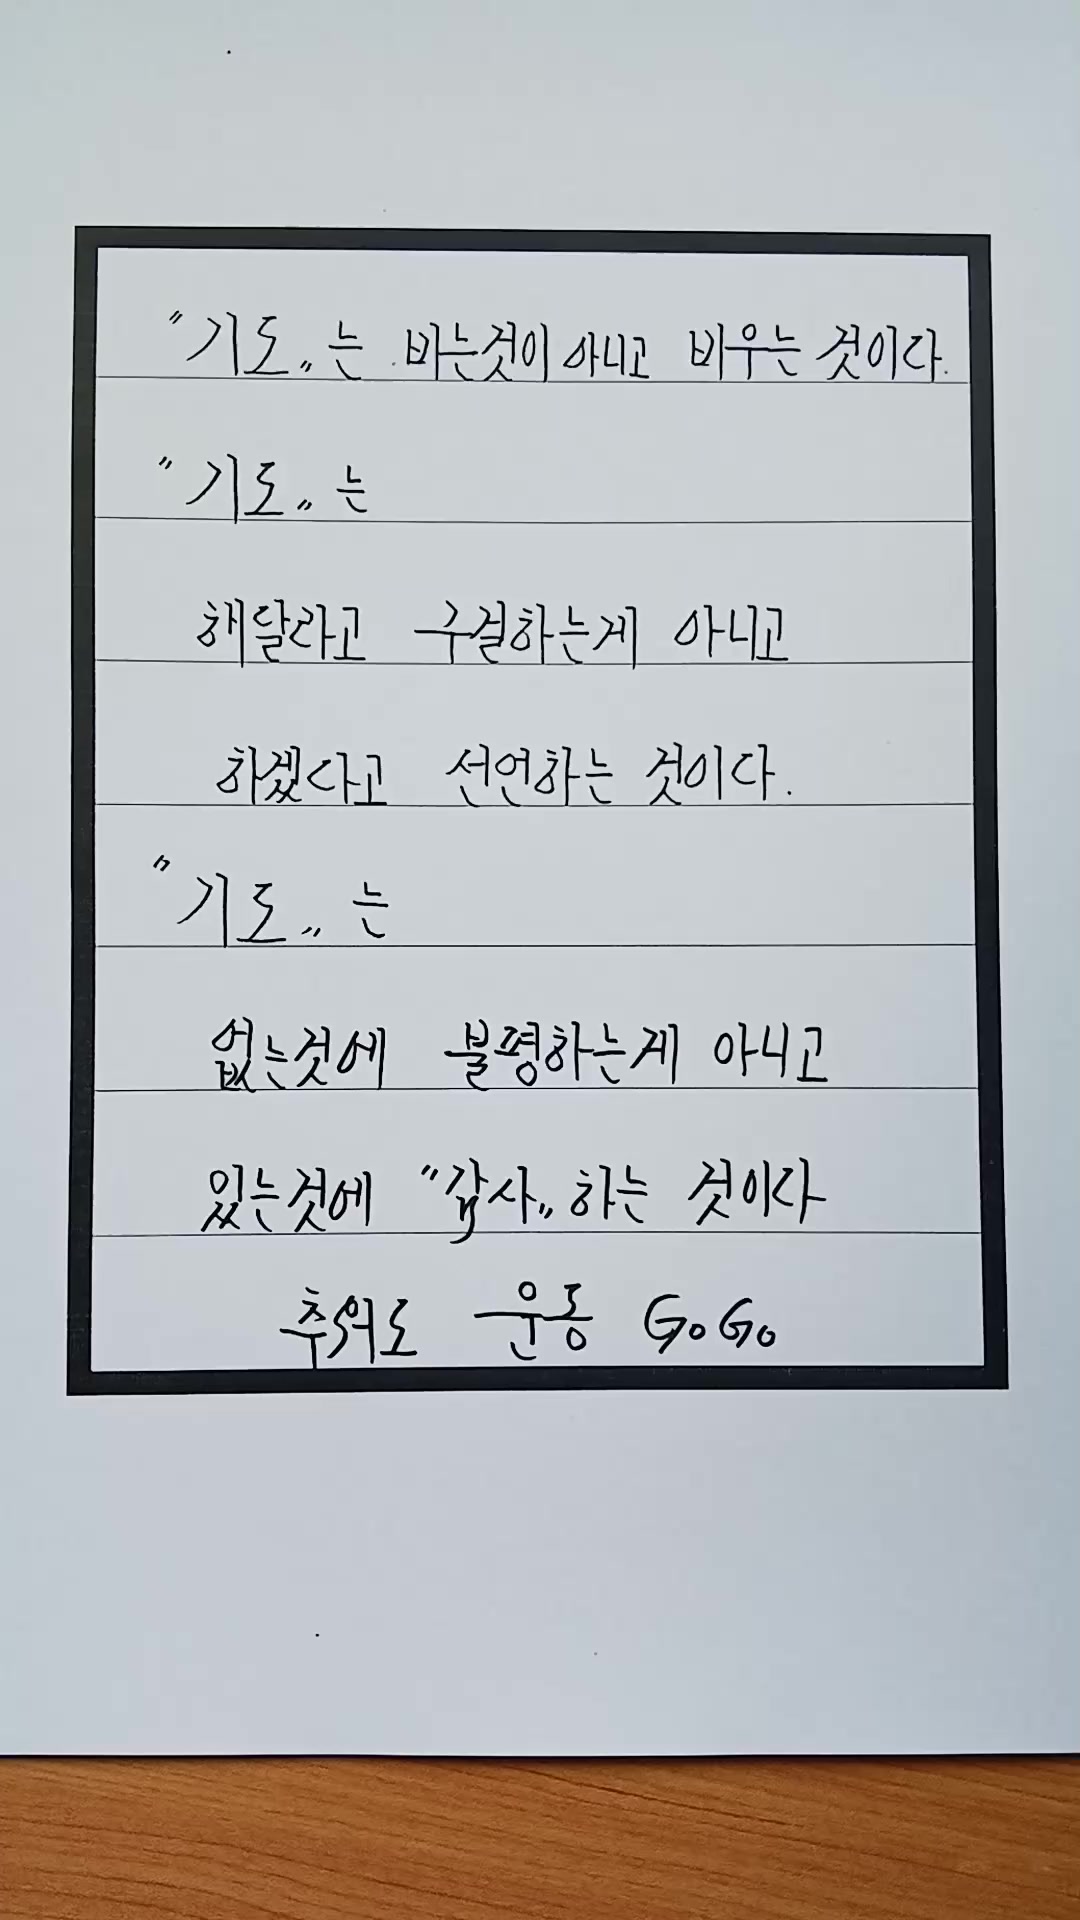 "기도"는 비는것이 아니고 비우는 것이다.
"기도"는
해달라고 구걸하는게 아니고
하겠다고 선언하는 것이다.
"기도"는
없는것에 불평하는게 아니고
있는것에 "감사"하는 것이다
추억도 운동 GoGo